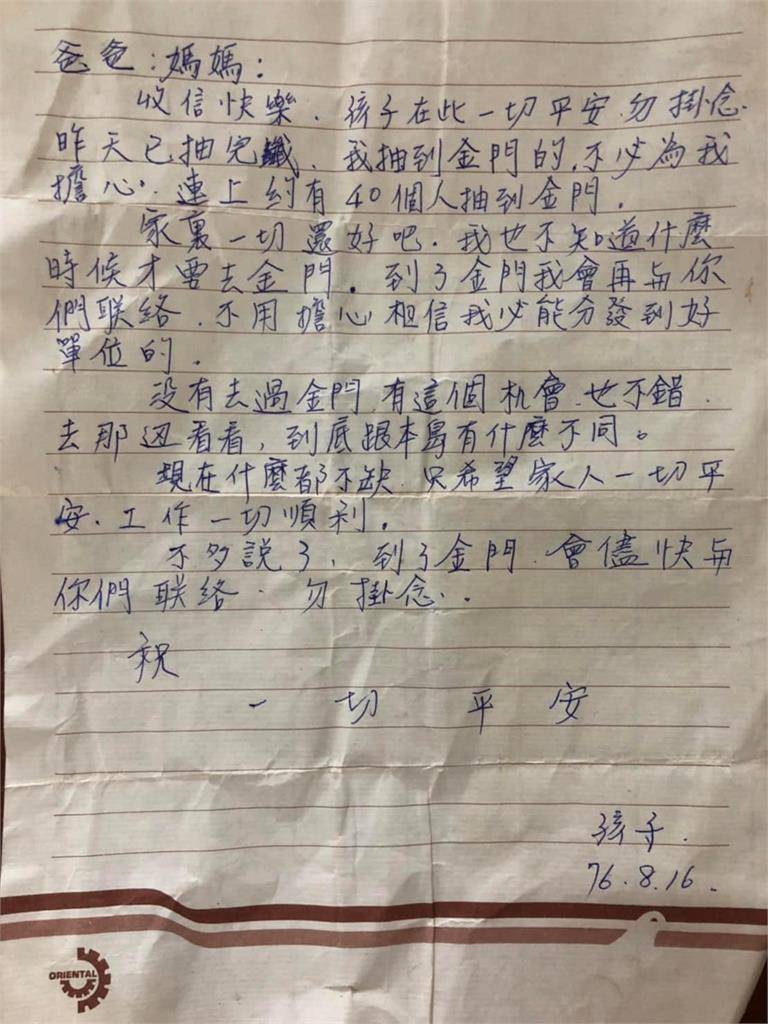 爸爸:媽媽:
收信快樂.孩子在此一切平安.勿掛念.
昨天已抽完籤.我抽到金門的.不必為我
擔心.連上約有40個人抽到金門.
家裏一切還好吧.我也不知道什麼
時候才要去金門.到了金門我會再与你
們联络.不用擔心相信我必能分發到好
單位的.
没有去過金門.有這個机會.也不錯.
去那边看看,到底跟本島有什麼不同。
現在什麼都不缺.只希望家人一切平
安.工作一切順利.
不多說了,到了金門.會儘快与
你們联络.勿掛念..
祝
一切平安
孩子.
76.8.16.
ORIENTAL